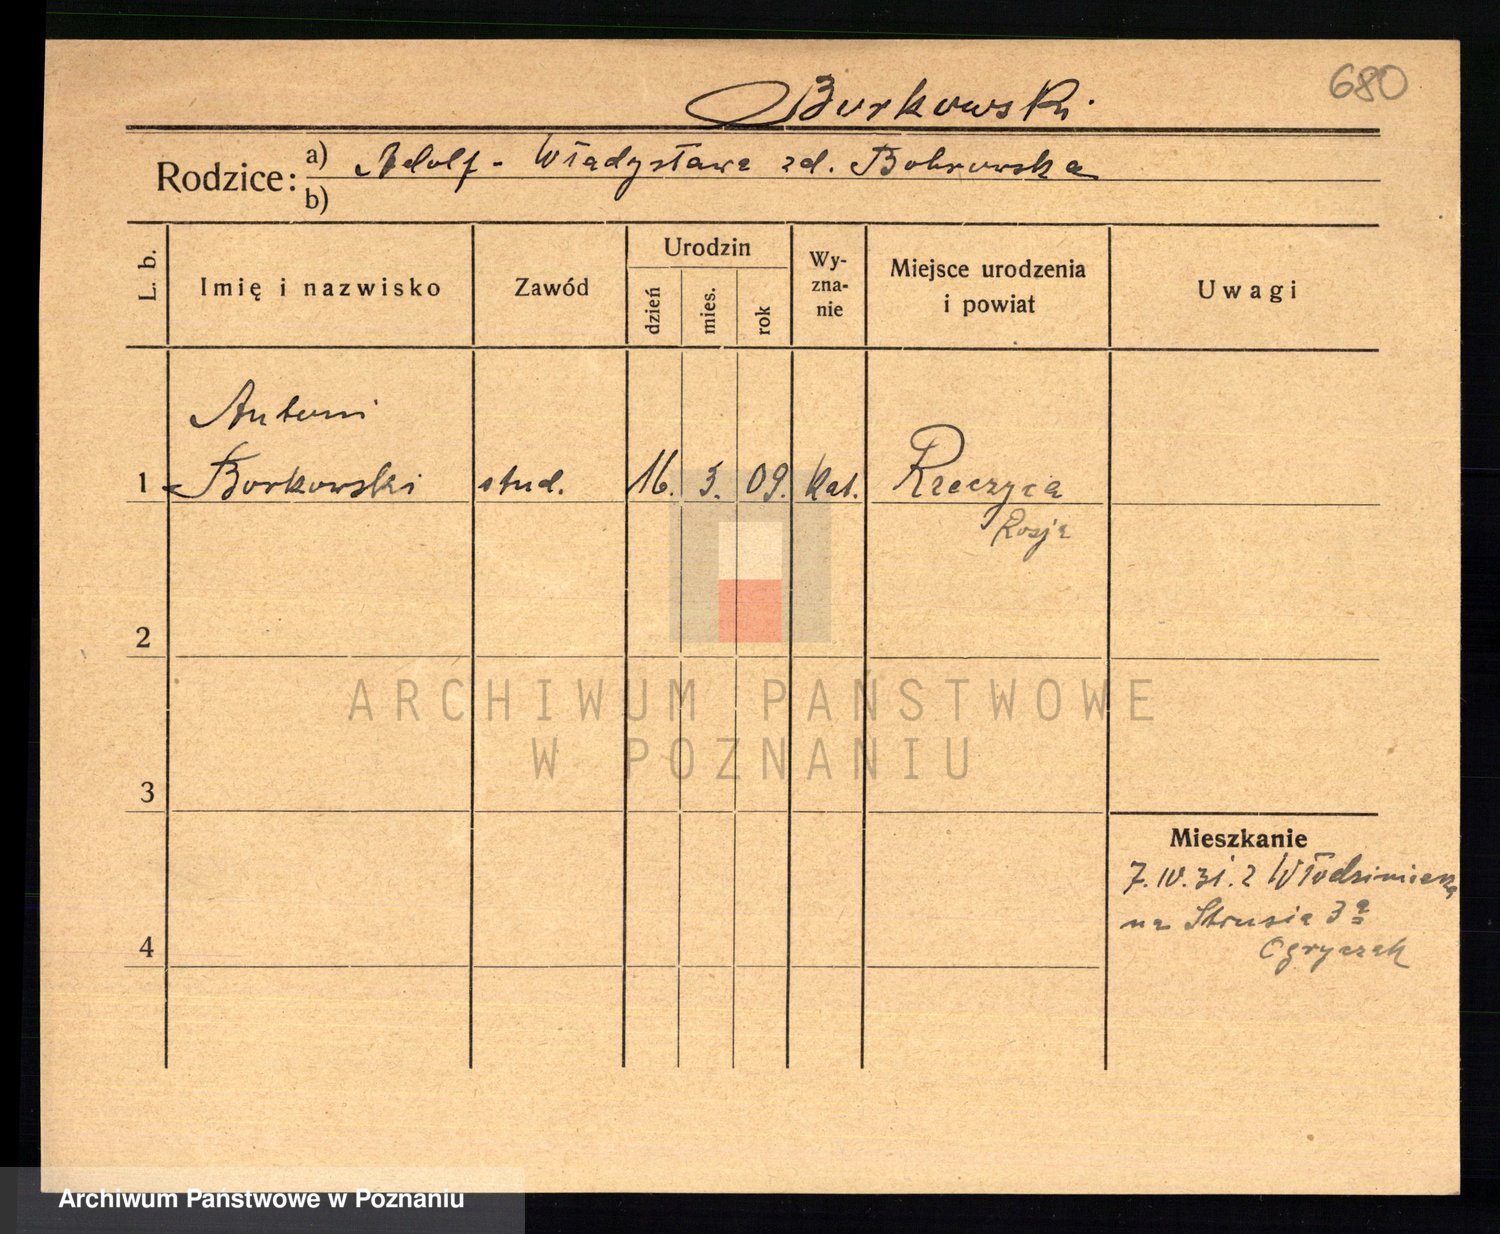 680
Borkowski
Rodzice: a) Adolf - Władysława zd. Bobrowska
b)
L. b.
Imię i nazwisko
Zawód
Urodzin
dzień
mies.
rok
Wy-
zna-
nie
Miejsce urodzenia
i powiat
Uwagi
Antoni
1 Borkowski stud. 16. 3. 09. kat. Rzeczyca
Rosja
2
ARCHIWUM PAŃSTWOWE
W POZNANIU
3
Mieszkanie
7.IV.31. z
na Strusia 3a
Ogryczak
4
Archiwum Państwowe w Poznaniu